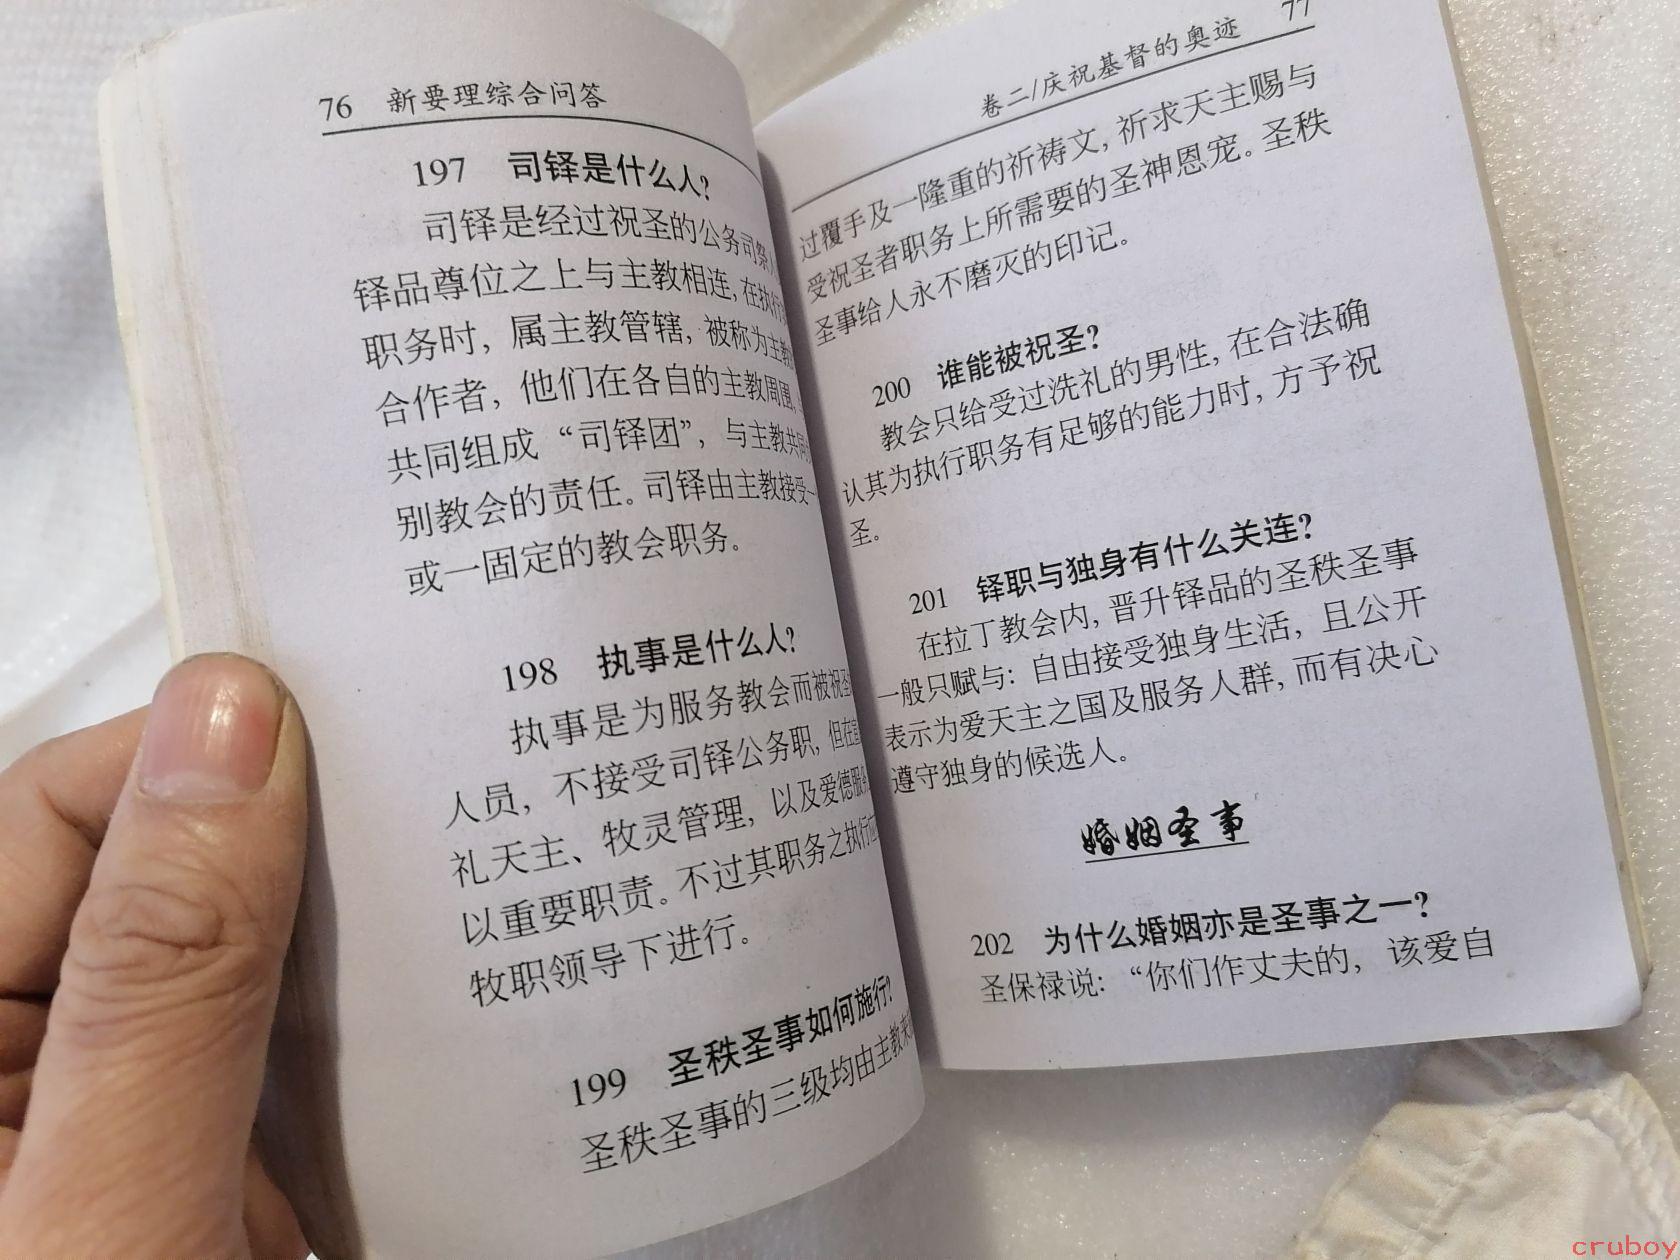 76 新要理综合问答
197 司铎是什么人?
司铎是经过祝圣的公务司祭
铎品尊位之上与主教相连,在执行
职务时，属主教管辖，被称为主教
合作者，他们在各自的主教周围,
共同组成“司铎团”，与主教共同
别教会的责任。司铎由主教接受一
或一固定的教会职务。
198 执事是什么人?
执事是为服务教会而被祝圣
人员，不接受司铎公务职，但在
礼天主、牧灵管理，以及爱德服务
以重要职责。不过其职务之执行
牧职领导下进行。
199 圣秩圣事如何施行?
圣秩圣事的三级均由主教
卷二/庆祝基督的奥迹 77
过覆手及一隆重的祈祷文,祈求天主赐与
受祝圣者职务上所需要的圣神恩宠。圣秩
圣事给人永不磨灭的印记。
200 谁能被祝圣?
教会只给受过洗礼的男性,在合法确
认其为执行职务有足够的能力时,方予祝
圣。
201 铎职与独身有什么关连?
在拉丁教会内,晋升铎品的圣秩圣事
一般只赋与：自由接受独身生活，且公开
表示为爱天主之国及服务人群,而有决心
遵守独身的候选人。
婚姻圣事
202 为什么婚姻亦是圣事之一?
圣保禄说：“你们作丈夫的，该爱自
cruboy